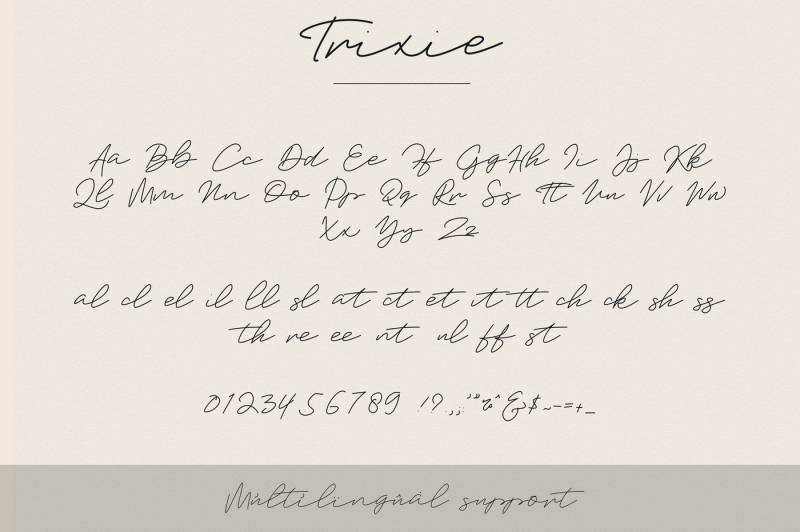 Trixie
Aa Bb Cc Dd Ee Ff Gg Hh Ii Jj Kk
Ll Mm Nn Oo Pp Qq Rr Ss Tt Uu Vv Ww
Xx Yy Zz
al cl el il ll sl at ct et it tt ch ck sh ss
th re ee nt nl ff st
0123456789 !?.,:;'"*^&$~-–=+_
Multilingual support